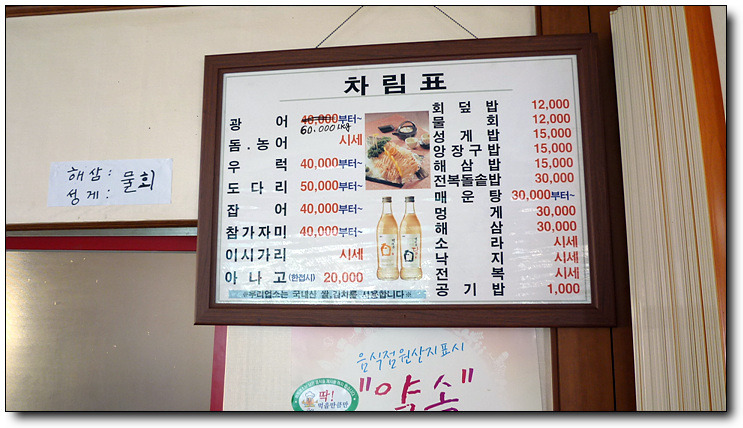 차림표
광어 40,000부터~
60.000 1kg
돔.농어 시세
우럭 40,000부터~
도다리 50,000부터~
잡어 40,000부터~
참가자미 40,000부터~
이시가리 시세
아나고(한접시) 20,000
※우리업소는 국내산 쌀,김치를 사용합니다※
회덮밥 12,000
물회 12,000
성게밥 15,000
앙장구밥 15,000
해삼밥 15,000
전복돌솥밥 30,000
매운탕 30,000부터~
멍게 30,000
해삼 30,000
소라 시세
낙지 시세
전복 시세
공기밥 1,000
해삼:
성게: 물회
음식점원산지표시
"약속"
딱!
먹을만큼만